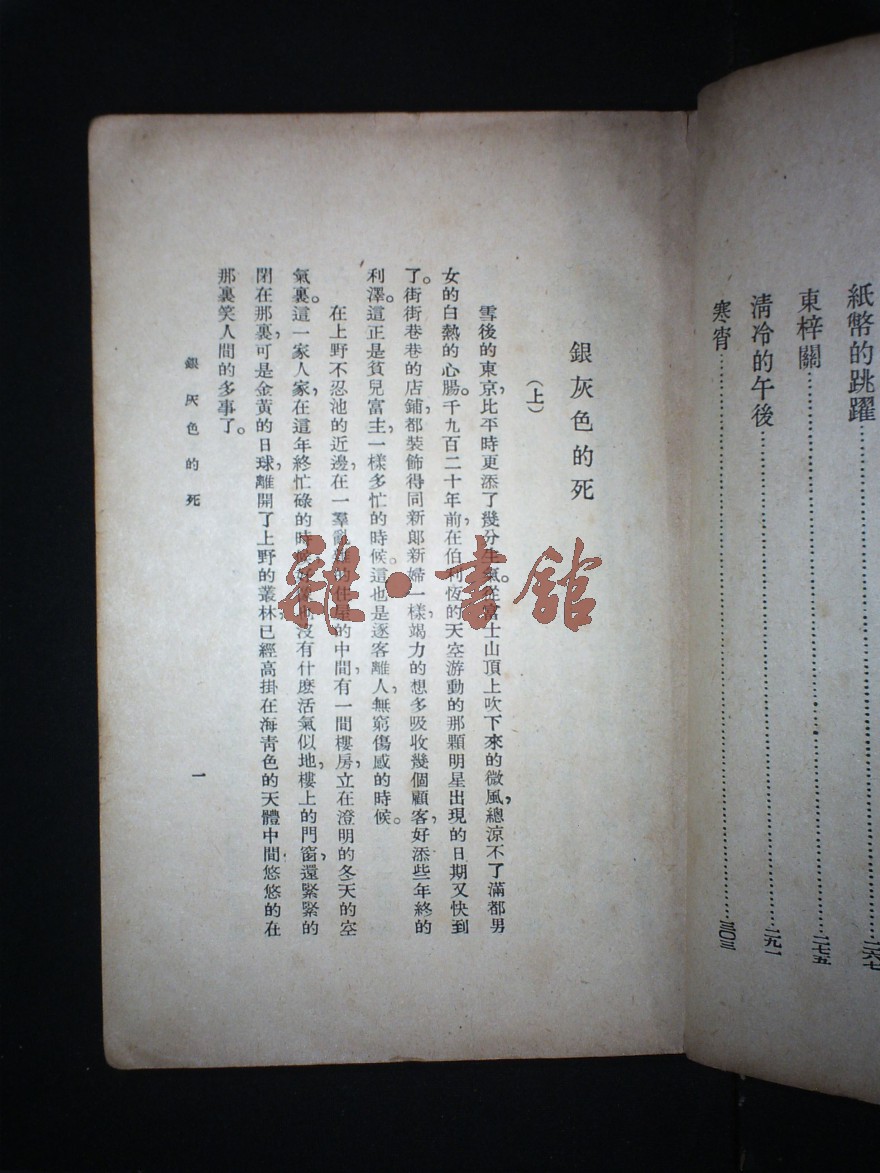 紙幣的跳躍……二六七
東梓關……二七五
清冷的午後……二九一
寒宵……三〇三
銀灰色的死
（上）
雪後的東京，比平時更添了幾分生氣。從富士山頂上吹下來的微風，總涼不了滿都男
女的白熱的心腸。千九百二十年前，在伯利恆的天空游動的那顆明星出現的日期又快到
了。街街巷巷的店鋪，都裝飾得同新郎新婦一樣，竭力的想多吸收幾個顧客，好添些年終的
利澤。這正是貧兒富主，一樣多忙的時候。這也是逐客離人，無窮傷感的時候。
在上野不忍池的近邊，在一羣亂雜的住屋的中間，有一間樓房，立在澄明的冬天的空
氣裏。這一家人家，在這年終忙碌的時候，好像也沒有什麽活氣似地，樓上的門窗，還緊緊的
閉在那裏，可是金黃的日球，離開了上野的叢林，已經高掛在海青色的天體中間，悠悠的在
那裏笑人間的多事了。
銀灰色的死
一
雜·書館